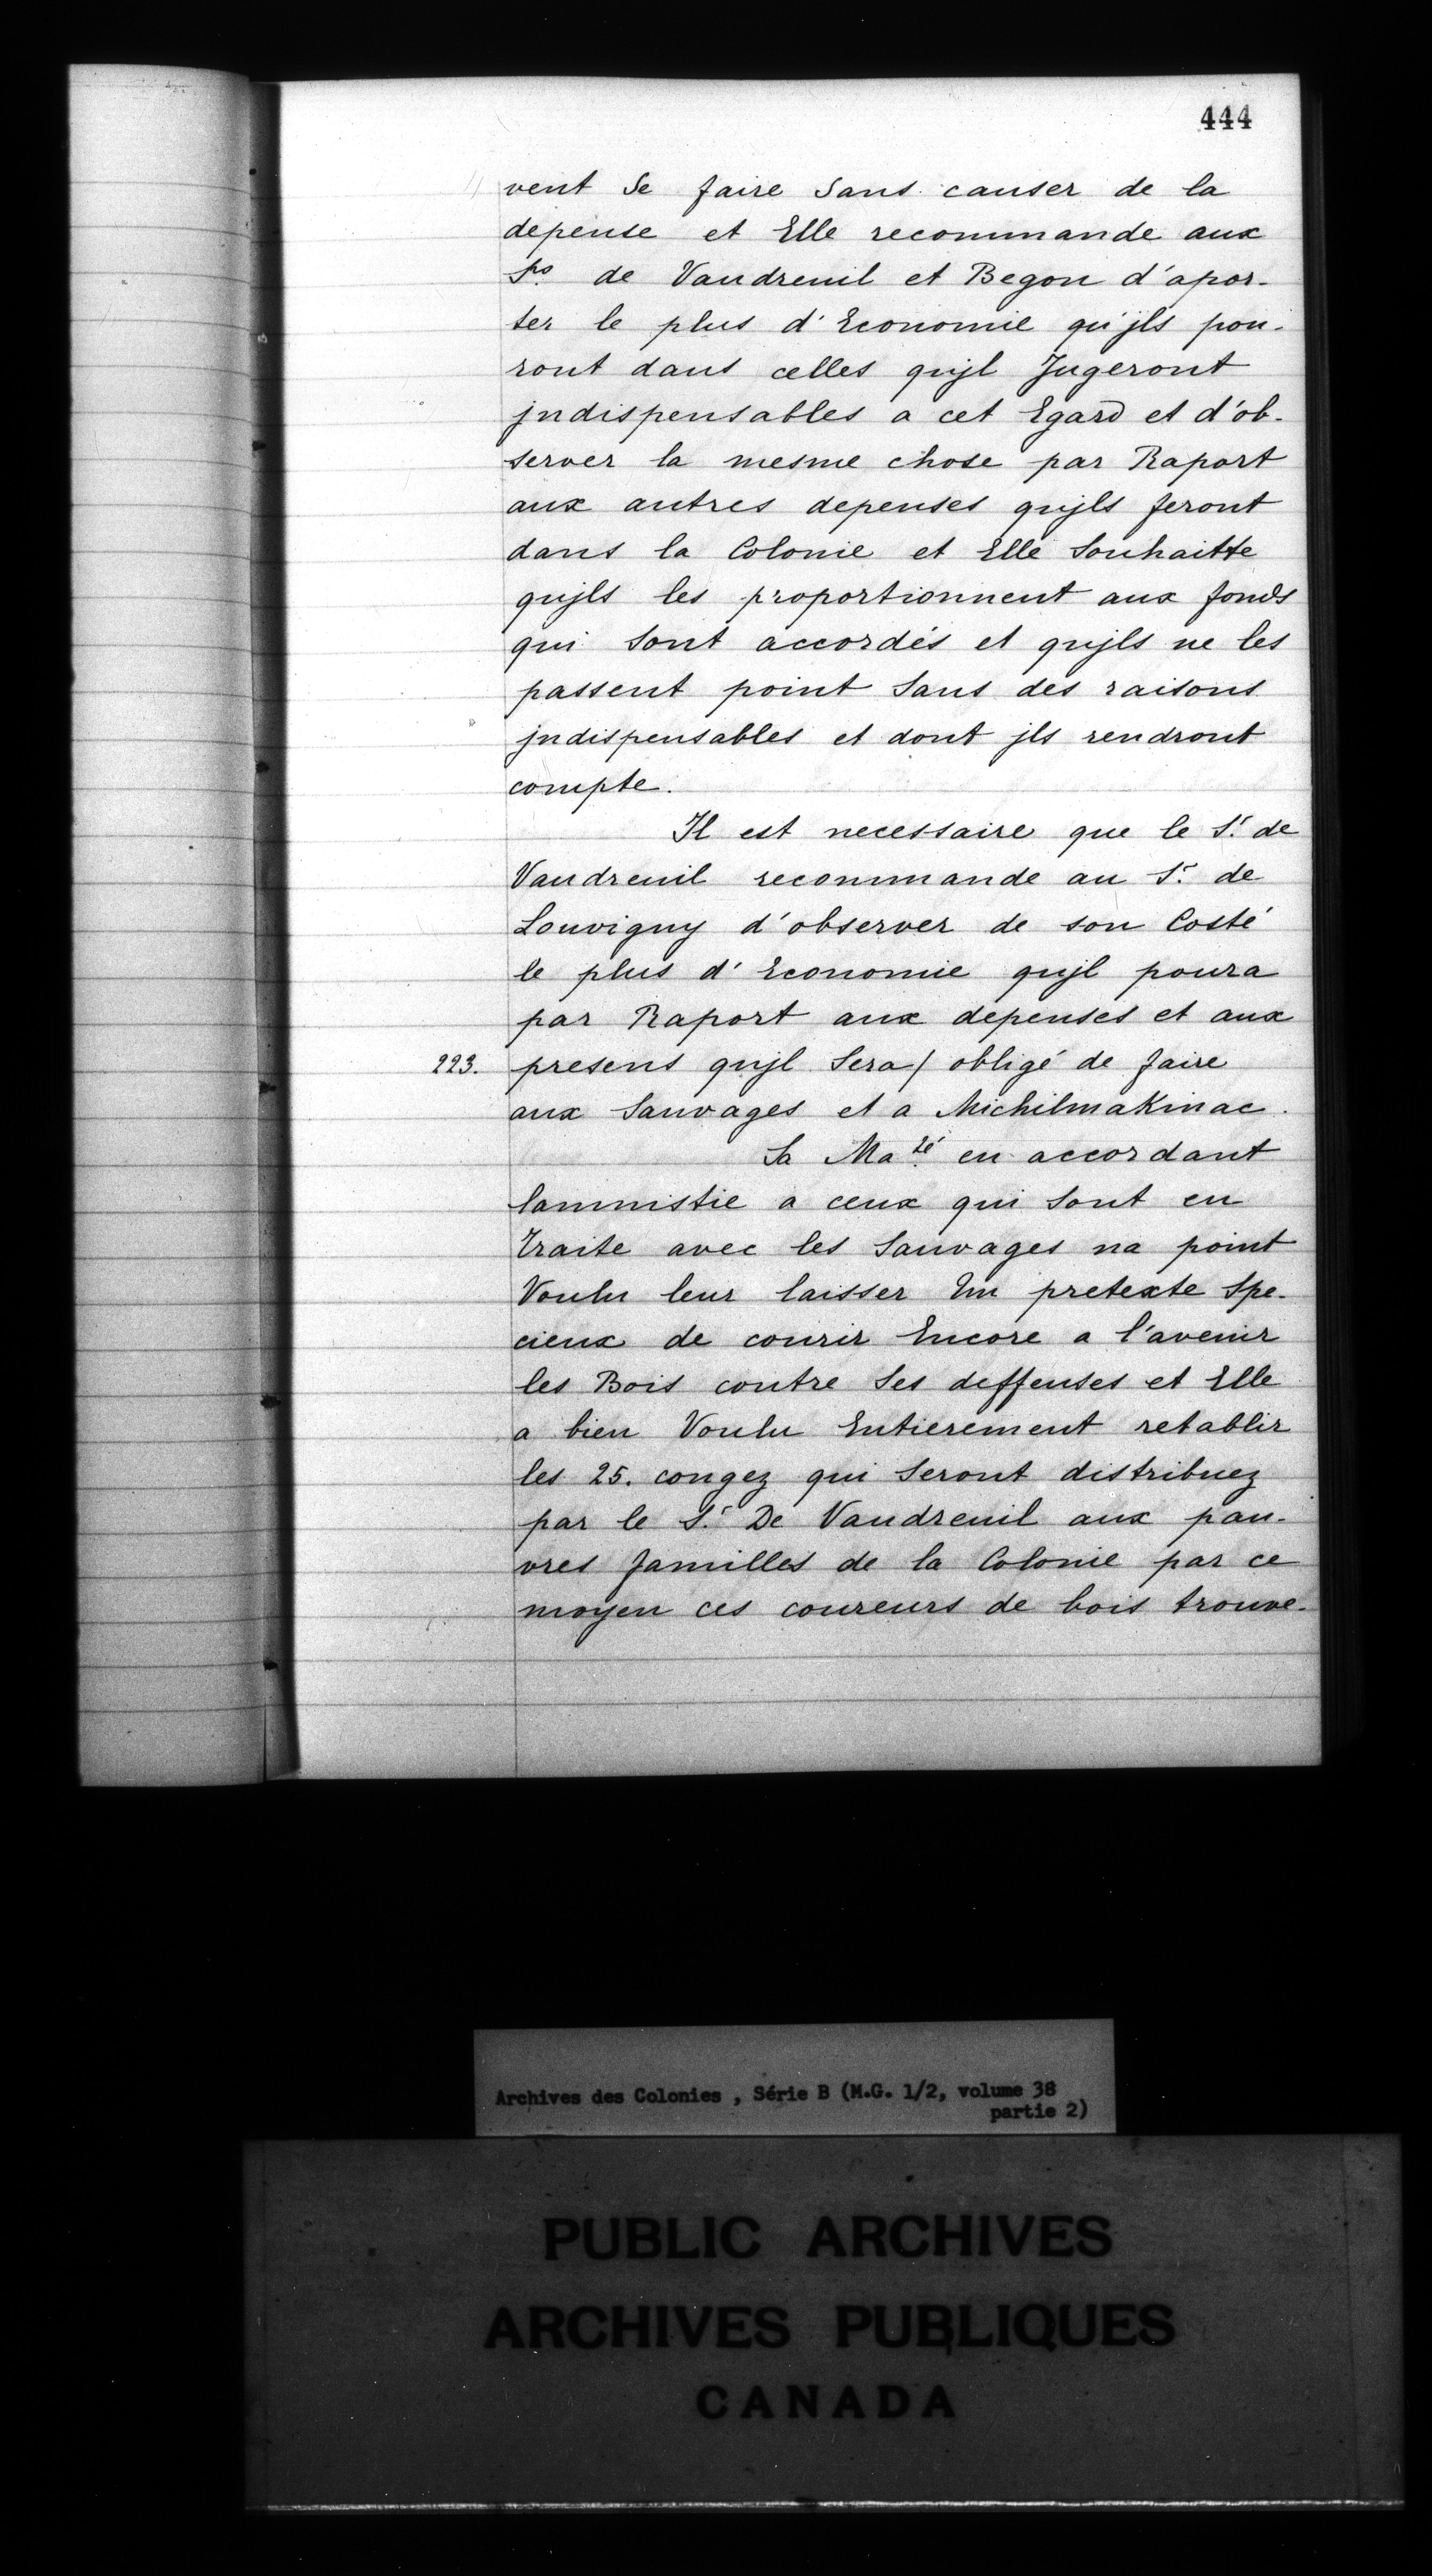 444
vent se faire sans causer de la
depense et Elle recommande aux
Srs. de Vaudreuil et Begon d'apor-
ter le plus d'Economie qu'jls pou-
ront dans celles qujl Jugeront
jndispensables a cet Egard et d'ob-
server la mesme chose par Raport
aux autres depenses qujls feront
dans la Colonie et Elle souhaitte
qujls les proportionnent aux fonds
qui sont accordés et qujls ne les
passent point sans des raisons
jndispensables et dont jls rendront
compte.
Il est necessaire que le Sr. de
Vaudreuil recommande au Sr. de
Louvigny d'observer de son Costé
le plus d'Economie qujl poura
par Raport aux depenses et aux
223. presens qujl sera/ obligé de faire
aux Sauvages et a MichilmaKinac.
Sa Maté. en accordant
lamnistie a ceux qui sont en
traite avec les Sauvages na point
Voulu leur laisser Un pretexte spe-
cieux de courir Encore a l'avenir
les Bois contre ses deffenses et Elle
a bien Voulu Entierement retablir
les 25. congez qui seront distribuez
par le Sr. De Vaudreuil aux pau-
vres familles de la Colonie par ce
moyen ces coureurs de bois trouve-
Archives des Colonies , Série B (M.G. 1/2, volume 38
partie 2)
PUBLIC ARCHIVES
ARCHIVES PUBLIQUES
CANADA